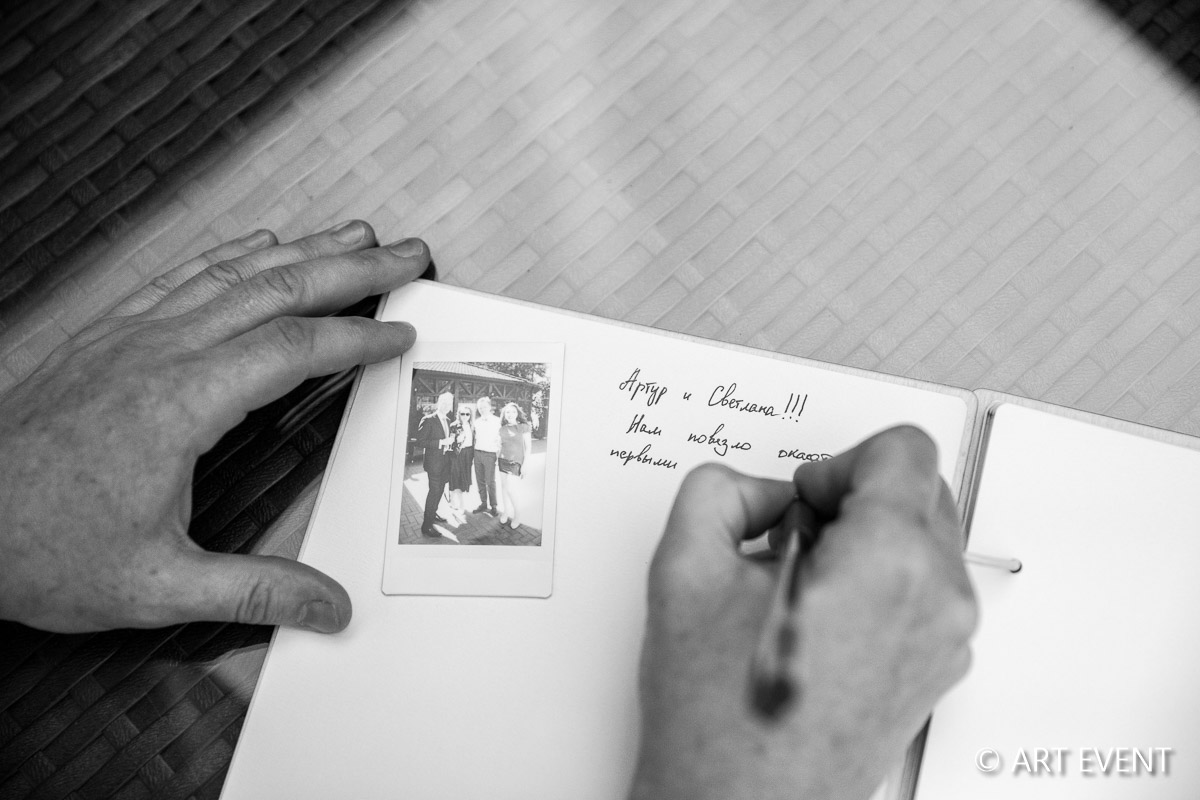 Артур и Светлана!!!
Нам повезло
первыми
© ART EVENT